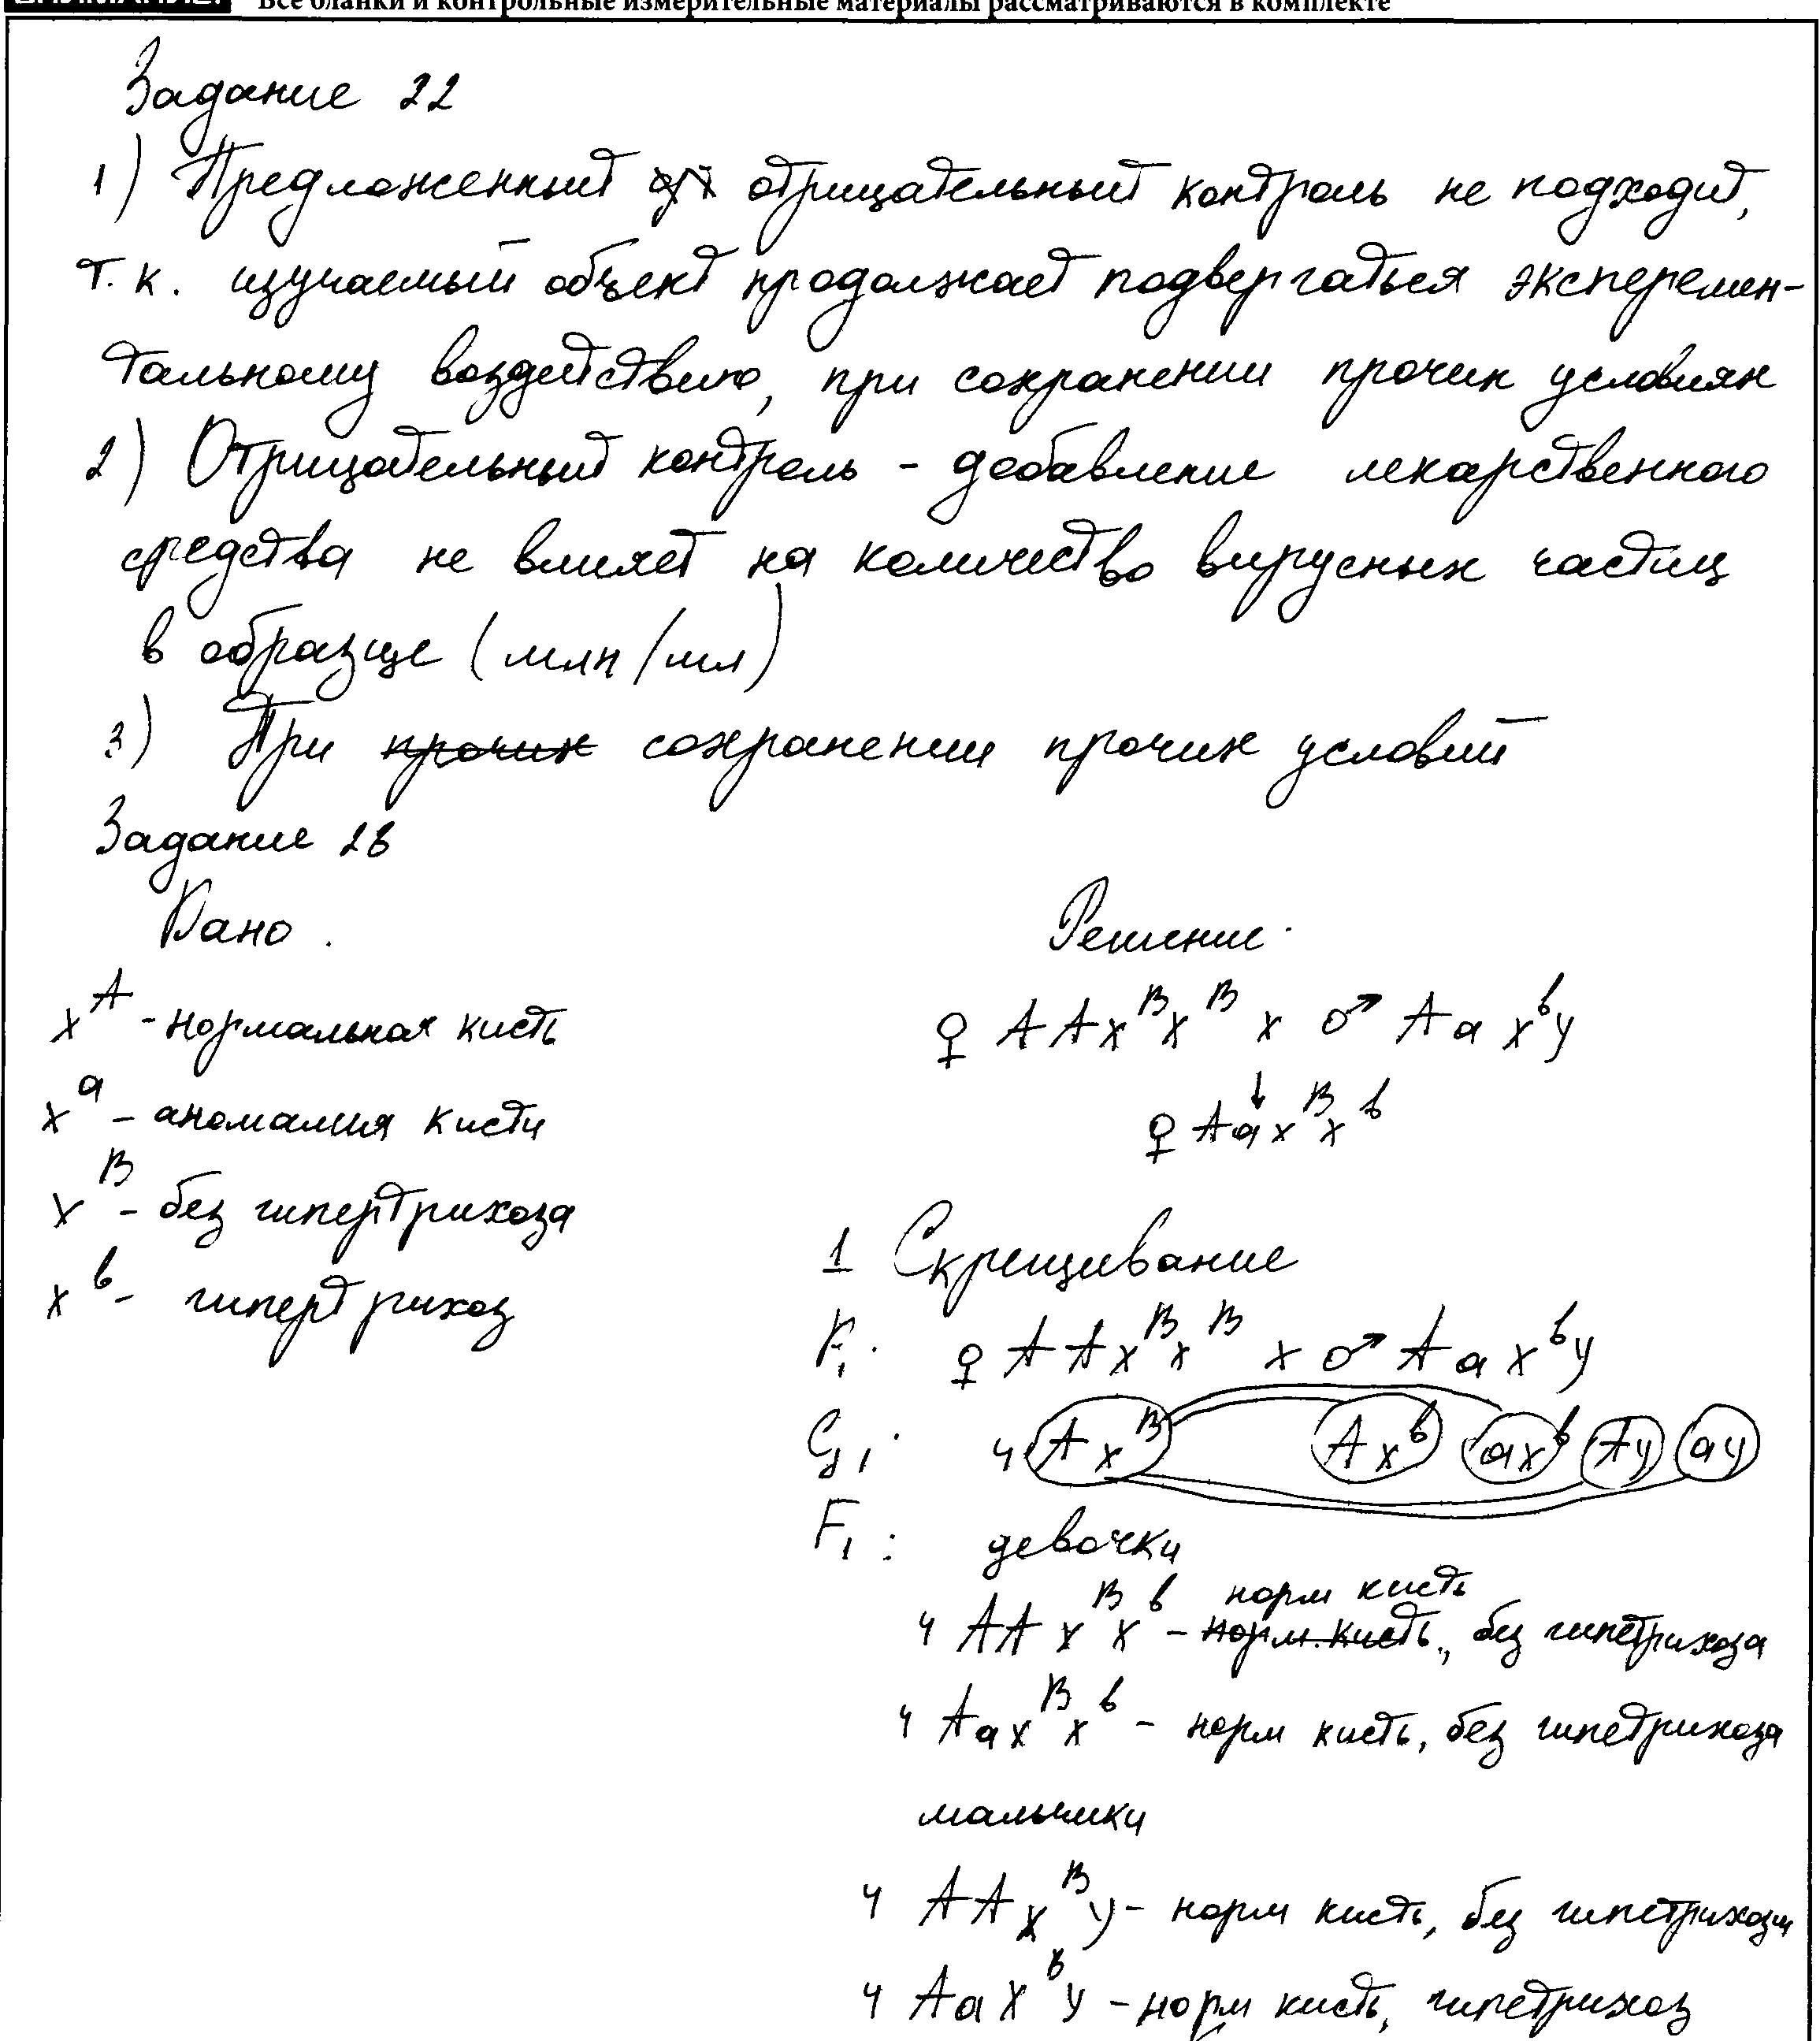 Все бланки и контрольные измерительные материалы рассматриваются в комплекте
Задание 22
1) Предложенный отрицательный контроль не подходит,
т.к. изучаемый объект продолжает подвергаться эксперемен-
тальному воздействию, при сохранении прочих условиях
2) Отрицательный контроль - добавление лекарственного
средства не влияет на количество вирусных частиц
в образце (млн/мл)
3) При прочих сохранении прочих условий
Задание 28
Дано.
Решение.
x^A - нормальная кисть
x^a - аномалия кисти
x^B - без гипертрихоза
x^b - гипертрихоз
♀ AAx^Bx^B x ♂ Aa x^by
↓
♀ Aax^Bx^b
1 Скрещивание
P₁. ♀ AAx^Bx^B x ♂ Aa x^by
G₁: ч Ax^B Ax^b ax^b Ay ay
F₁: девочки
норм кисть
ч AA x^Bx^b - норм. кисть, без гипетрихоза
ч Aax^Bx^b - норм кисть, без гипетрихоза
мальчики
ч AAx^By - норм кисть, без гипетрихозы
ч AaX^by - норм кисть, гипетрихоз